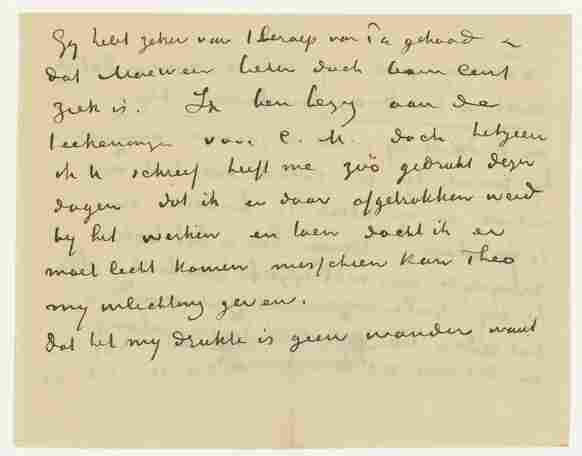 Gij hebt zeker van 't beroep van Pa gehoord en
dat Mauve beter doch kam eens
ziek is. Ik ben bezig aan de
teekeningen voor C. M. doch hetgeen
ik U schreef heeft me zoo gedrukt dezer
dagen dat ik er door afgetrokken werd
by het werken en toen dacht ik er
moet licht komen misschien kan Theo
my inlichting geven.
dat het my drukte is geen wonder want